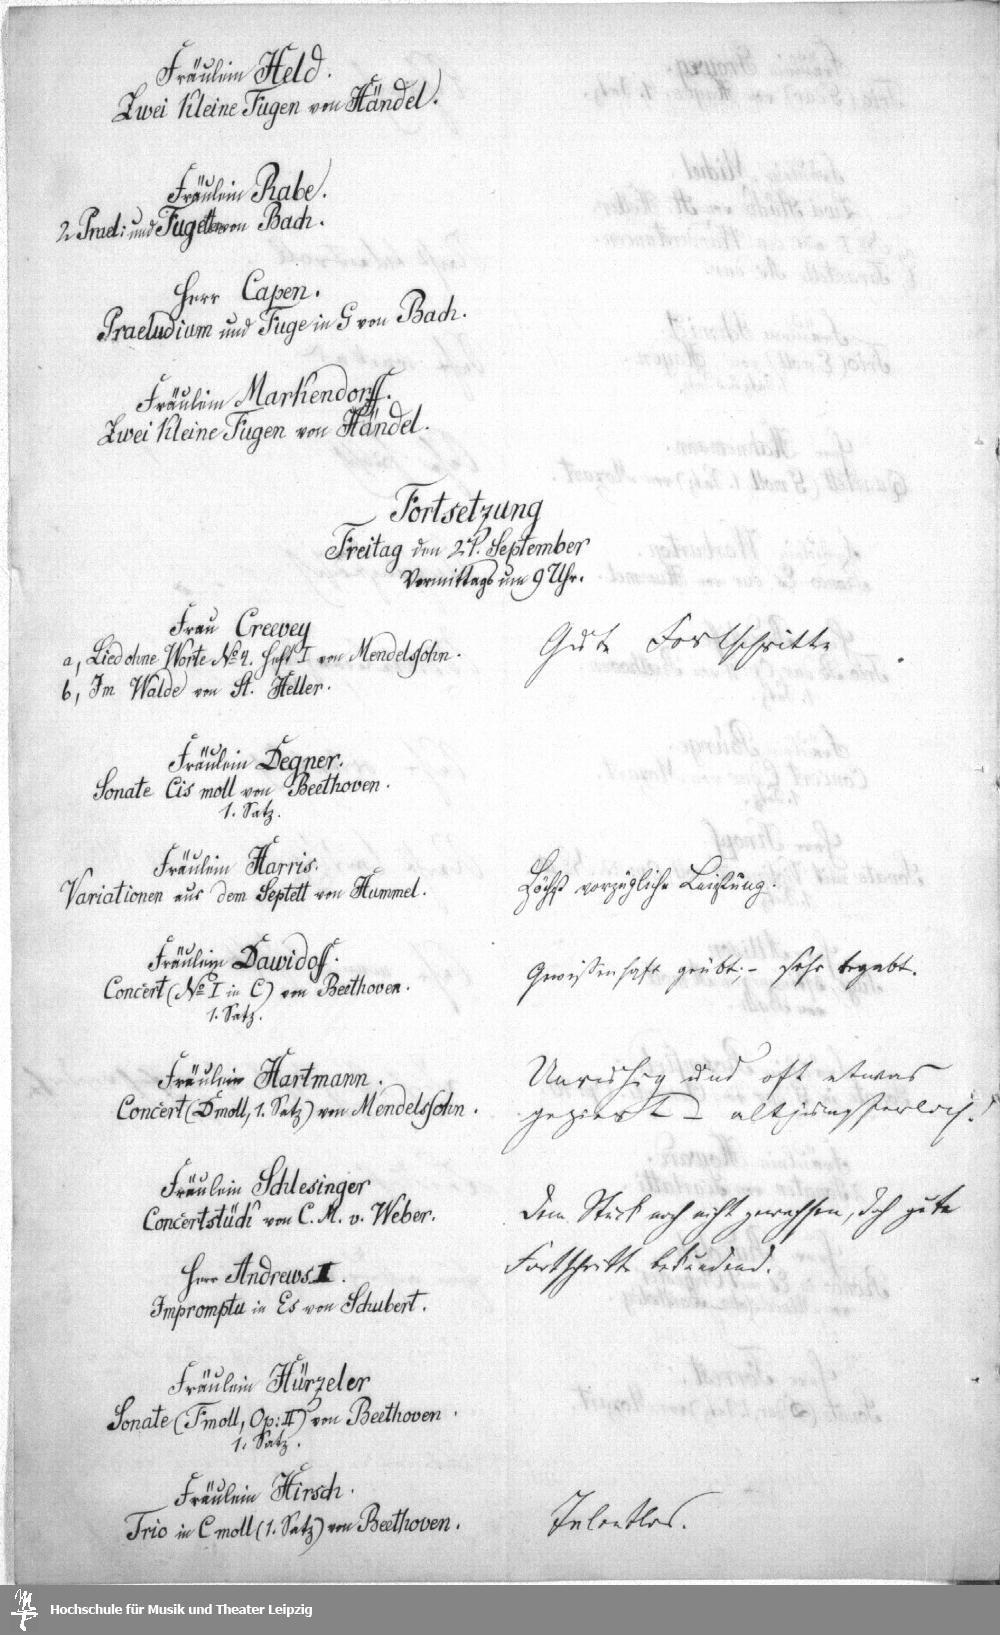 Fräulein Held.
Zwei Kleine Fugen von Händel.
Fräulein Rabe.
2 Prael: und Fugetten von Bach.
Herr Capen.
Praeludium und Fuge in G von Bach.
Fräulein Markendorff.
Zwei Kleine Fugen von Händel.
Fortsetzung
Freitag den 21. September
Vormittags um 9 Uhr.
Frau Creevey
a, Lied ohne Worte No 4. Heft I von Mendelssohn.
b, Im Walde von St. Heller.
Gute Fortschritte
Fräulein Degner.
Sonate Cis moll von Beethoven.
1. Satz.
Fräulein Harris.
Variationen aus dem Septett von Hummel.
Höchst vorzügliche Leistung.
Fräulein Dawidoff.
Concert (No I in C) von Beethoven.
1. Satz.
Gewissenhaft geübt; - sehr begabt.
Fräulein Hartmann.
Concert (D moll, 1. Satz) von Mendelssohn.
Unruhig und oft etwas
geziert - altjüngferlich!
Fräulein Schlesinger
Concertstück von C. M. v. Weber.
Dem Stück noch nicht gewachsen, doch gute
Fortschritte bekundend.
Herr Andrews II.
Impromptu in Es von Schubert.
Fräulein Hürzeler
Sonate (F moll, Op: II) von Beethoven.
1. Satz.
Fräulein Hirsch.
Trio in C moll (1. Satz) von Beethoven.
Talentlos.
Hochschule für Musik und Theater Leipzig